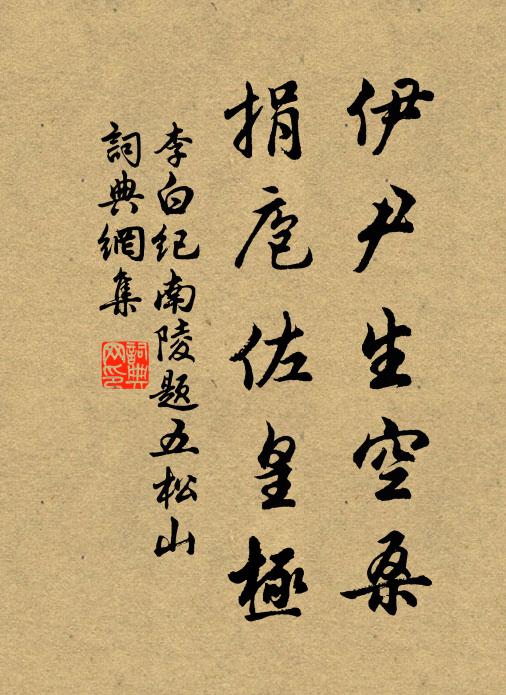 伊尹生空桑
捐庖佐皇極
李白纪南陵题五松山
詞典網集
詞典網印